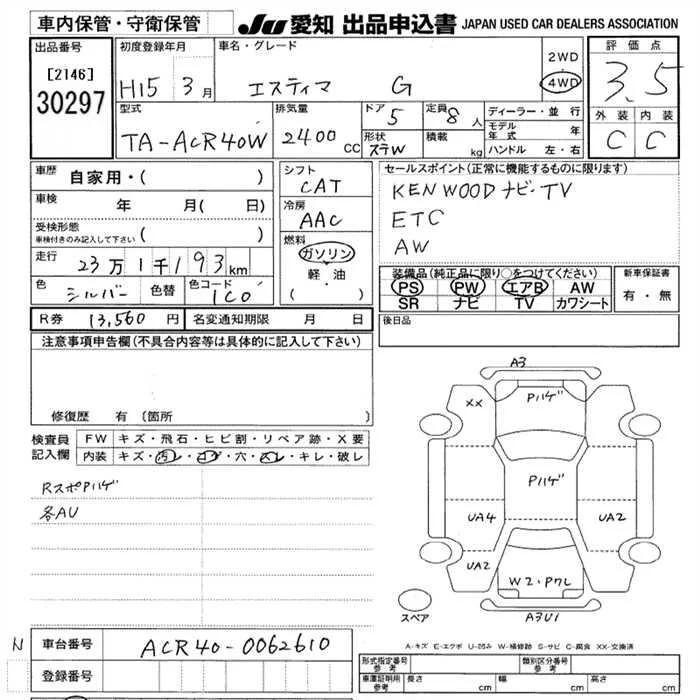 車内保管・守衛保管
JU 愛知 出品申込書 JAPAN USED CAR DEALERS ASSOCIATION
出品番号
[2146]
30297
初度登録年月
H15 3月
車名・グレード
エスティマ G
2WD
4WD
評価点
3.5
外装 内装
C C
型式
TA-ACR40W
排気量
2400 CC
ドア
5
形状
ステW
定員
8人
積載
kg
ディーラー・並行
モデル年式 年
ハンドル 左・右
車歴
自家用・( )
車検 年 月( 日)
受検形態
車検付きのみ記入して下さい ( )
走行
23万1千193km
色
シルバー
色替
色コード
1C0
シフト
CAT
冷房
AAC
燃料
ガソリン
軽・油
( ・ )
セールスポイント(正常に機能するものに限ります)
KENWOODナビ・TV
ETC
AW
装備品(純正品に限り○をつけてください)
PS PW エアB AW
SR ナビ TV カワシート
新車保証書
有・無
R券 13,560円 名変通知期限 月 日
後日品
注意事項申告欄(不具合内容等は具体的に記入して下さい)
修復歴 有〔箇所
検査員記入欄
FW キズ・飛石・ヒビ割・リペア跡・X要
内装 キズ・汚レ・コゲ・穴・スレ・キレ・破レ
RスポPハゲ
各AU
A3
XX
Pハゲ
Pハゲ
UA4
UA2
UA2
W2・Pワレ
A3U1
スペア
A-キズ E-エクボ U-凹み W-補修跡 S-サビ C-腐食 XX-交換済
N
車台番号
ACR40-0062610
登録番号
形式指定番号
参考
類別区分番号
参考
車庫証明用
参考
長さ cm 幅 cm 高さ cm